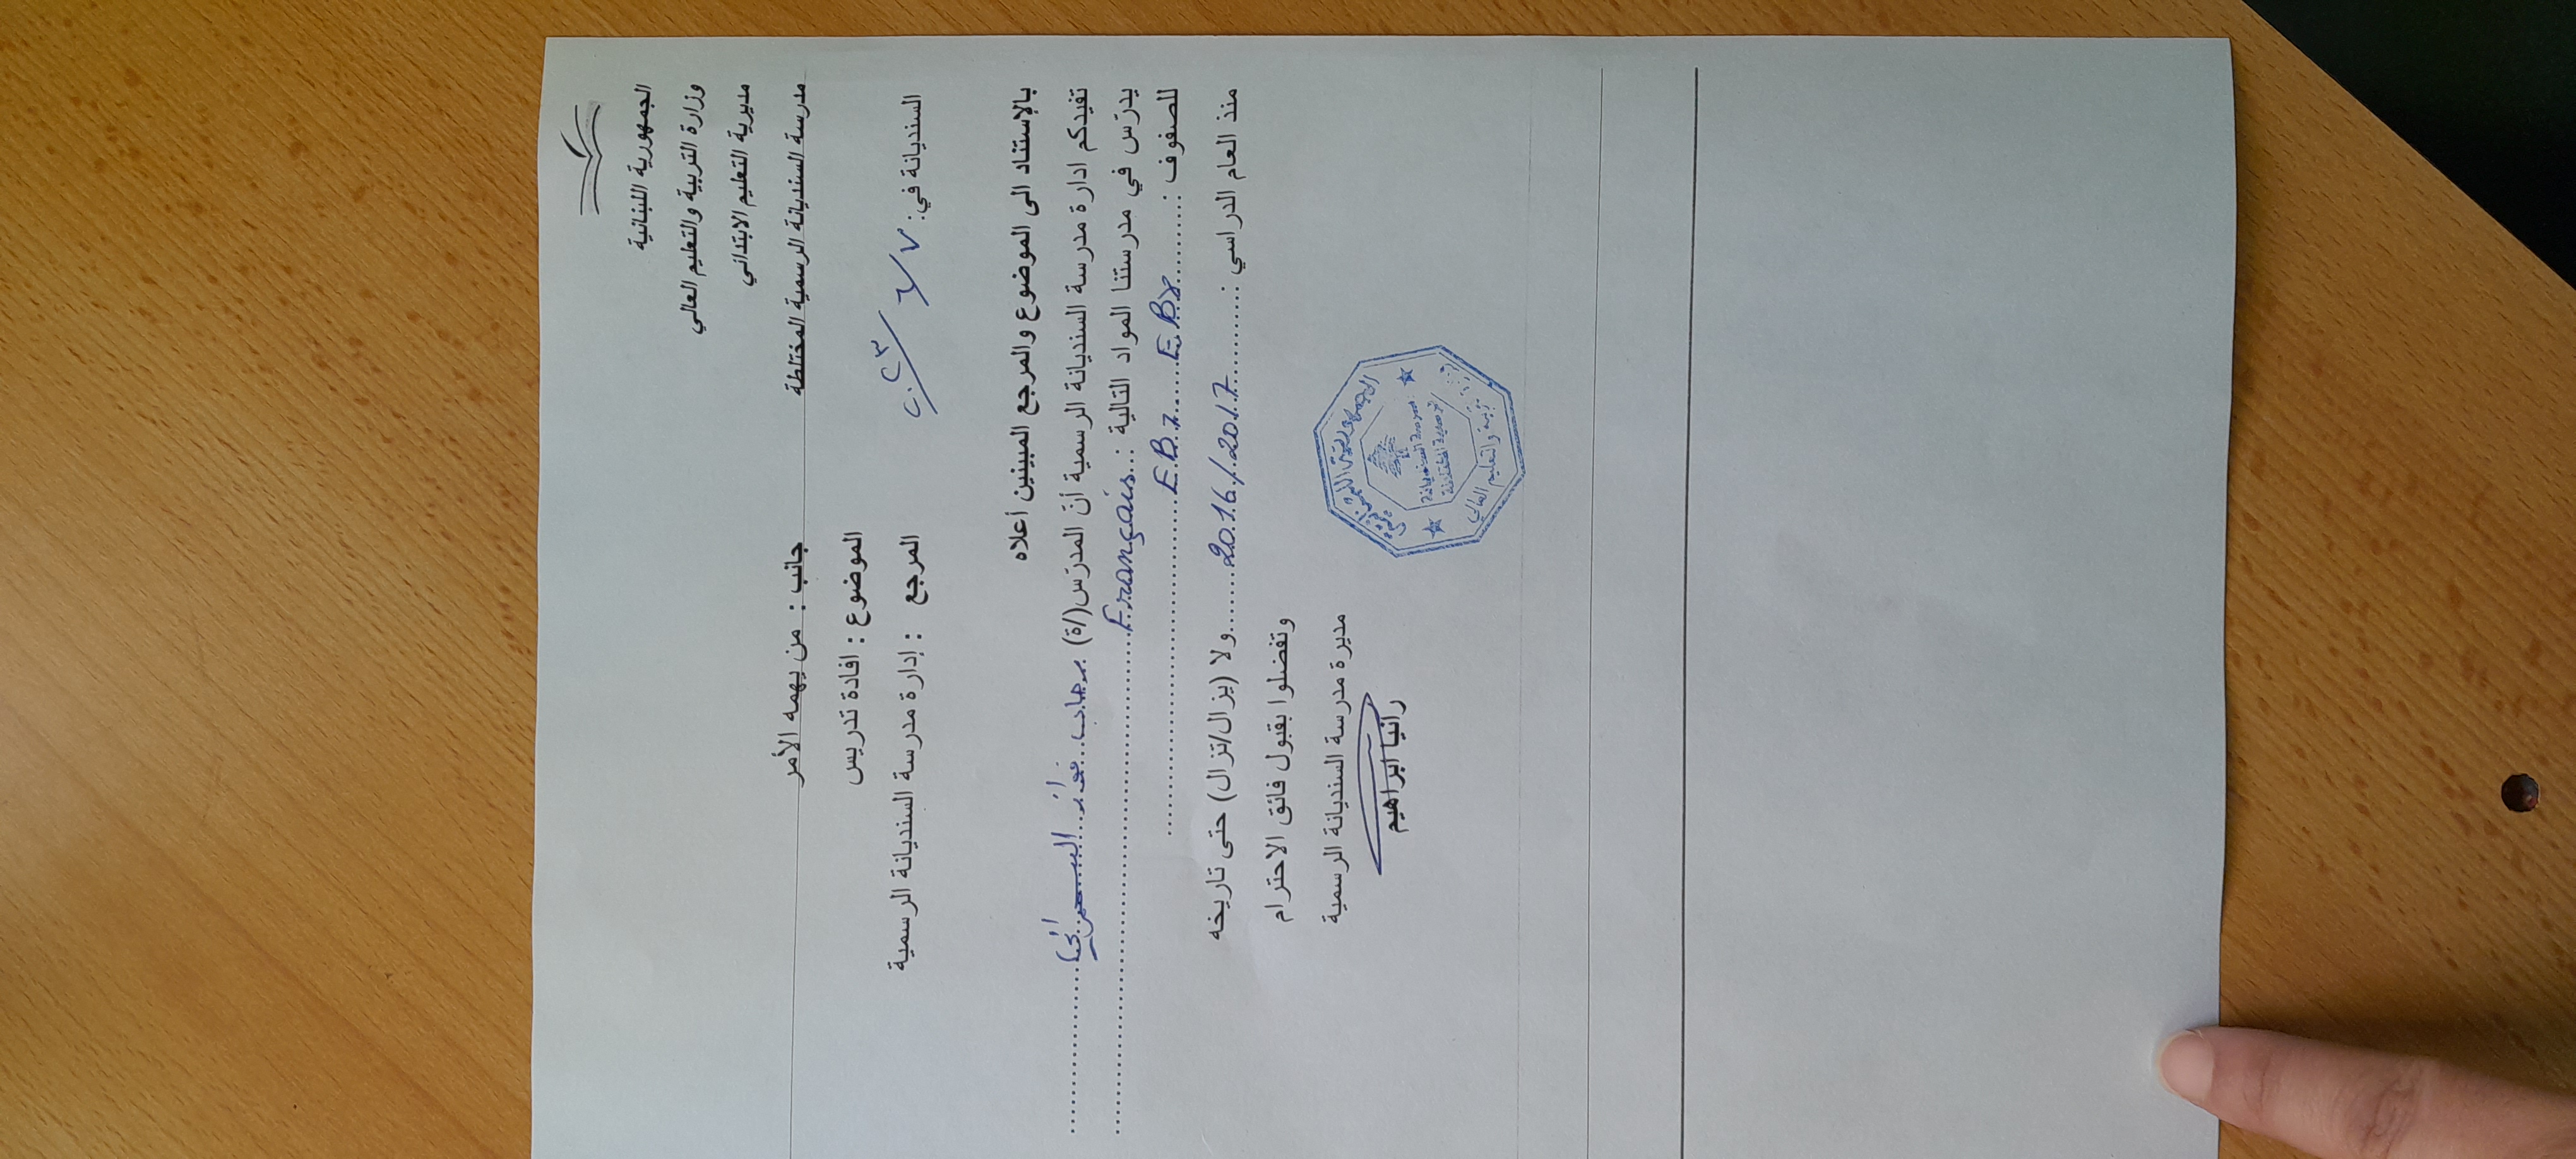 الجمهورية اللبنانية
وزارة التربية والتعليم العالي
مديرية التعليم الابتدائي
مدرسة السنديانة الرسمية المختلطة
جانب : من يهمه الأمر
الموضوع : افادة تدريس
السنديانة في: ٧/٦/٢٠٢٣
المرجع : إدارة مدرسة السنديانة الرسمية
بالإستناد الى الموضوع والمرجع المبينين أعلاه
تفيدكم ادارة مدرسة السنديانة الرسمية أنّ المدرّس(/ة) رحاب فواز البستاني
يدرّس في مدرستنا المواد التالية : Français
للصفوف : E.B.7 E.B8
منذ العام الدراسي : 2016/2017 ولا (يزال/تزال) حتى تاريخه
وتفضلوا بقبول فائق الاحترام
مديرة مدرسة السنديانة الرسمية
رانيا ابراهيم
الجمهورية اللبنانية
مدرسة السنديانة
الرسمية المختلطة
وزارة التربية والتعليم العالي